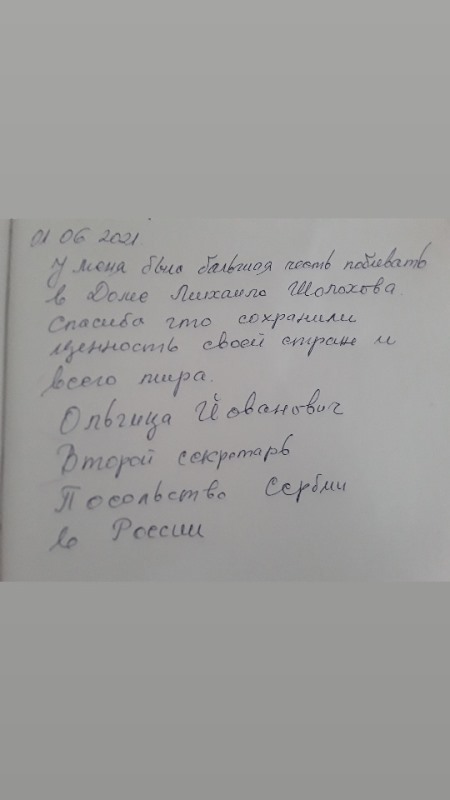 01 06 2021.
У меня была балшая честь побиевать
в Доме Михаило Шолохова.
Спасиба что сохранили
ценность своей стране и
всего мира.
Ольгица Йованович
Второй секретарь
Посольство Сербии
в России